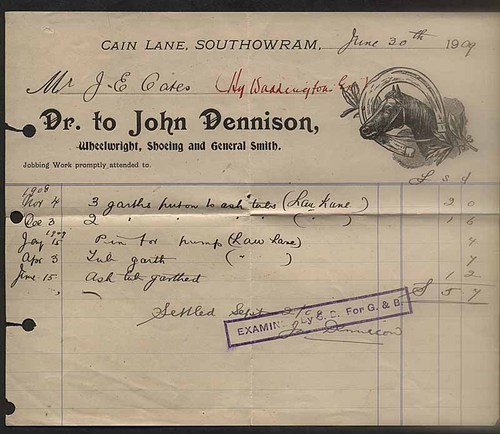 CAIN LANE, SOUTHOWRAM, June 30th 1909
Mr J. E. Oates (Hy Baddington Esq)
Dr. to John Dennison,
Wheelwright, Shoeing and General Smith.
Jobbing Work promptly attended to.
£ s d
1908
Nov 4 3 garths put on to ash tubs (Law Lane) 2 0
Dec 3 2 " " " " ( " ) 1 6
1909
Jany 15 Pin for pump (Law Lane) 4
Apr 3 Tub garth ( " " ) 7
June 15 Ash tub garthed 1 2
£ 5 7
Settled Sept
EXAMINED by S. D. For G. & B.
Jn Dennison